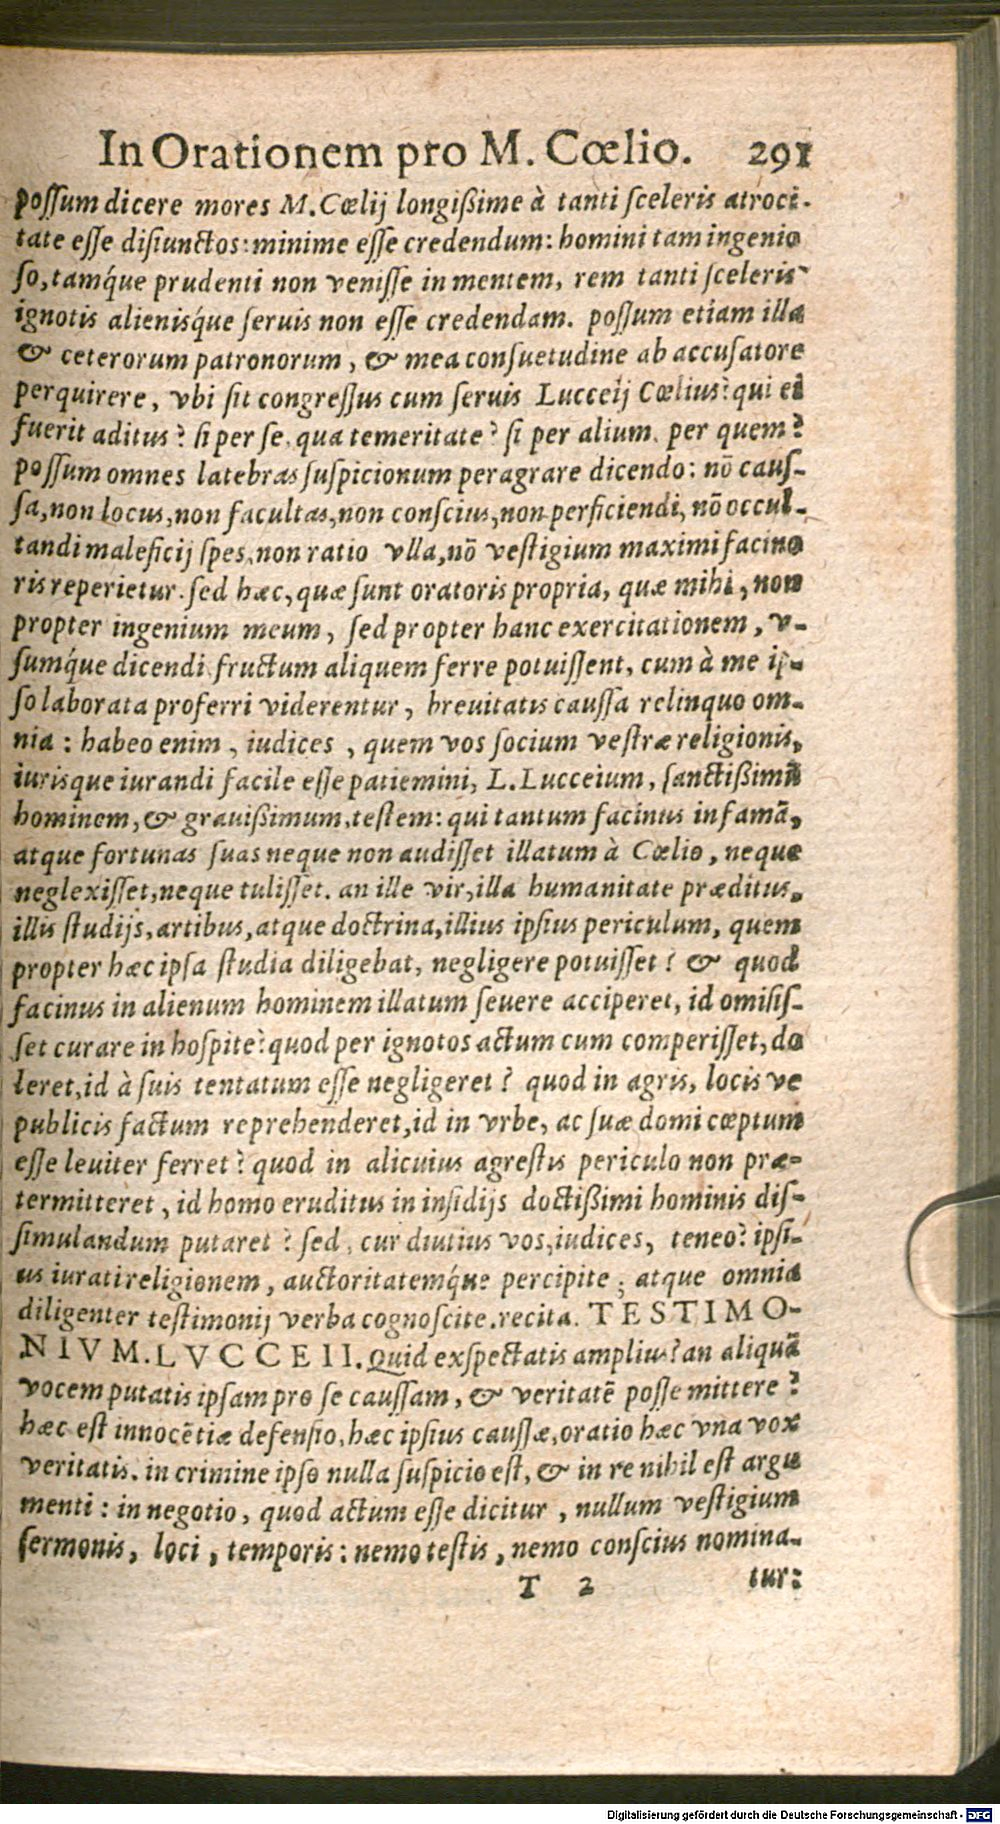 In Orationem pro M. Cœlio. 291
possum dicere mores M. Cœlij longißime à tanti sceleris atroci-
tate esse disiunctos: minime esse credendum: homini tam ingenio
so, tamq́ue prudenti non venisse in mentem, rem tanti sceleris
ignotis alienisq́ue seruis non esse credendam. possum etiam illa
& ceterorum patronorum, & mea consuetudine ab accusatore
perquirere, vbi sit congressus cum seruis Lucceij Cœlius? qui ei
fuerit aditus? si per se, qua temeritate? si per alium, per quem?
possum omnes latebras suspicionum peragrare dicendo: nō caus-
sa, non locus, non facultas, non conscius, non perficiendi, nō occul-
tandi maleficij spes, non ratio vlla, nō vestigium maximi facino
ris reperietur. sed hæc, quæ sunt oratoris propria, quæ mihi, non
propter ingenium meum, sed propter hanc exercitationem, v-
sumq́ue dicendi fructum aliquem ferre potuissent, cum à me ip-
so laborata proferri viderentur, breuitatis caussa relinquo om-
nia: habeo enim, iudices, quem vos socium vestræ religionis,
iurisque iurandi facile esse patiemini, L. Lucceium, sanctißimū
hominem, & grauißimum, testem: qui tantum facinus in famā,
atque fortunas suas neque non audisset illatum à Cœlio, neque
neglexisset, neque tulisset. an ille vir, illa humanitate præditus,
illis studijs, artibus, atque doctrina, illius ipsius periculum, quem
propter hæc ipsa studia diligebat, negligere potuisset? & quod
facinus in alienum hominem illatum seuere acciperet, id omisis-
set curare in hospite? quod per ignotos actum cum comperisset, do
leret, id à suis tentatum esse negligeret? quod in agris, locis ve
publicis factum reprehenderet, id in vrbe, ac suæ domi cœptum
esse leuiter ferret? quod in alicuius agrestis periculo non præ-
termitteret, id homo eruditus in insidijs doctißimi hominis dis-
simulandum putaret? sed, cur diutius vos, iudices, teneo? ipsi-
us iurati religionem, auctoritatemq́ue percipite; atque omnia
diligenter testimonij verba cognoscite. recita. TESTIMO-
NIVM. LVCCEII. Quid exspectatis amplius? an aliquā
vocem putatis ipsam pro se caussam, & veritatē posse mittere?
hæc est innocētiæ defensio, hæc ipsius caussæ, oratio hæc vna vox
veritatis. in crimine ipso nulla suspicio est, & in re nihil est argu
menti: in negotio, quod actum esse dicitur, nullum vestigium
sermonis, loci, temporis: nemo testis, nemo conscius nomina-
T 2 tur:
Digitalisierung gefördert durch die Deutsche Forschungsgemeinschaft - DFG